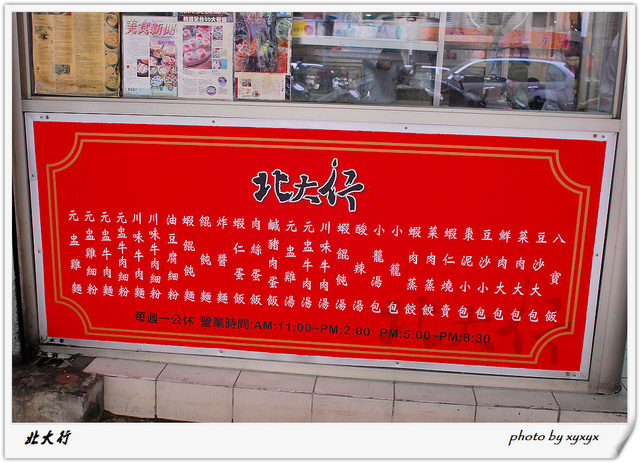 美食新聞
北大行
元盅雞麵
元盅雞細粉
元盅牛肉麵
元盅牛肉細粉
川味牛肉麵
川味牛肉細粉
油豆腐細粉
蝦餛飩麵
餛飩麵
炸醬麵
蝦仁蛋飯
肉絲蛋飯
鹹豬肉蛋飯
元盅雞湯
元盅牛肉湯
川味牛肉湯
蝦餛飩湯
酸辣湯
小籠湯包
小籠包
蝦肉蒸餃
菜肉蒸餃
蝦仁燒賣
棗泥小包
豆沙小包
鮮肉大包
菜肉大包
豆沙大包
八寶飯
每週一公休 營業時間:AM:11:00~PM:2:00 PM:5:00~PM:8:30
北大行
photo by xyxyx